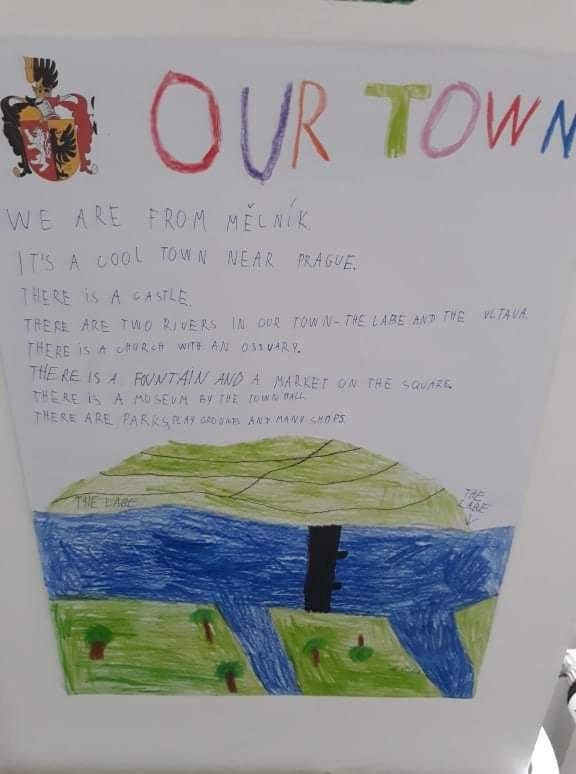 OUR TOWN
WE ARE FROM MĚLNÍK
IT'S A COOL TOWN NEAR PRAGUE.
THERE IS A CASTLE.
THERE ARE TWO RIVERS IN OUR TOWN - THE LABE AND THE VLTAVA.
THERE IS A CHURCH WITH AN OSSUARY.
THERE IS A FOUNTAIN AND A MARKET ON THE SQUARE.
THERE IS A MUSEUM BY THE TOWN HALL.
THERE ARE PARKS, PLAY GROUNDS AND MANY SHOPS.
THE LABE
THE
LABE